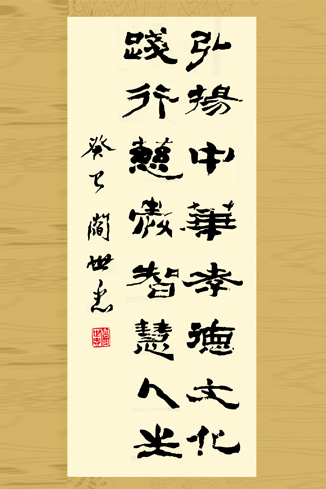 弘揚中華孝德文化
踐行慈智慧人生
癸巳 閻世